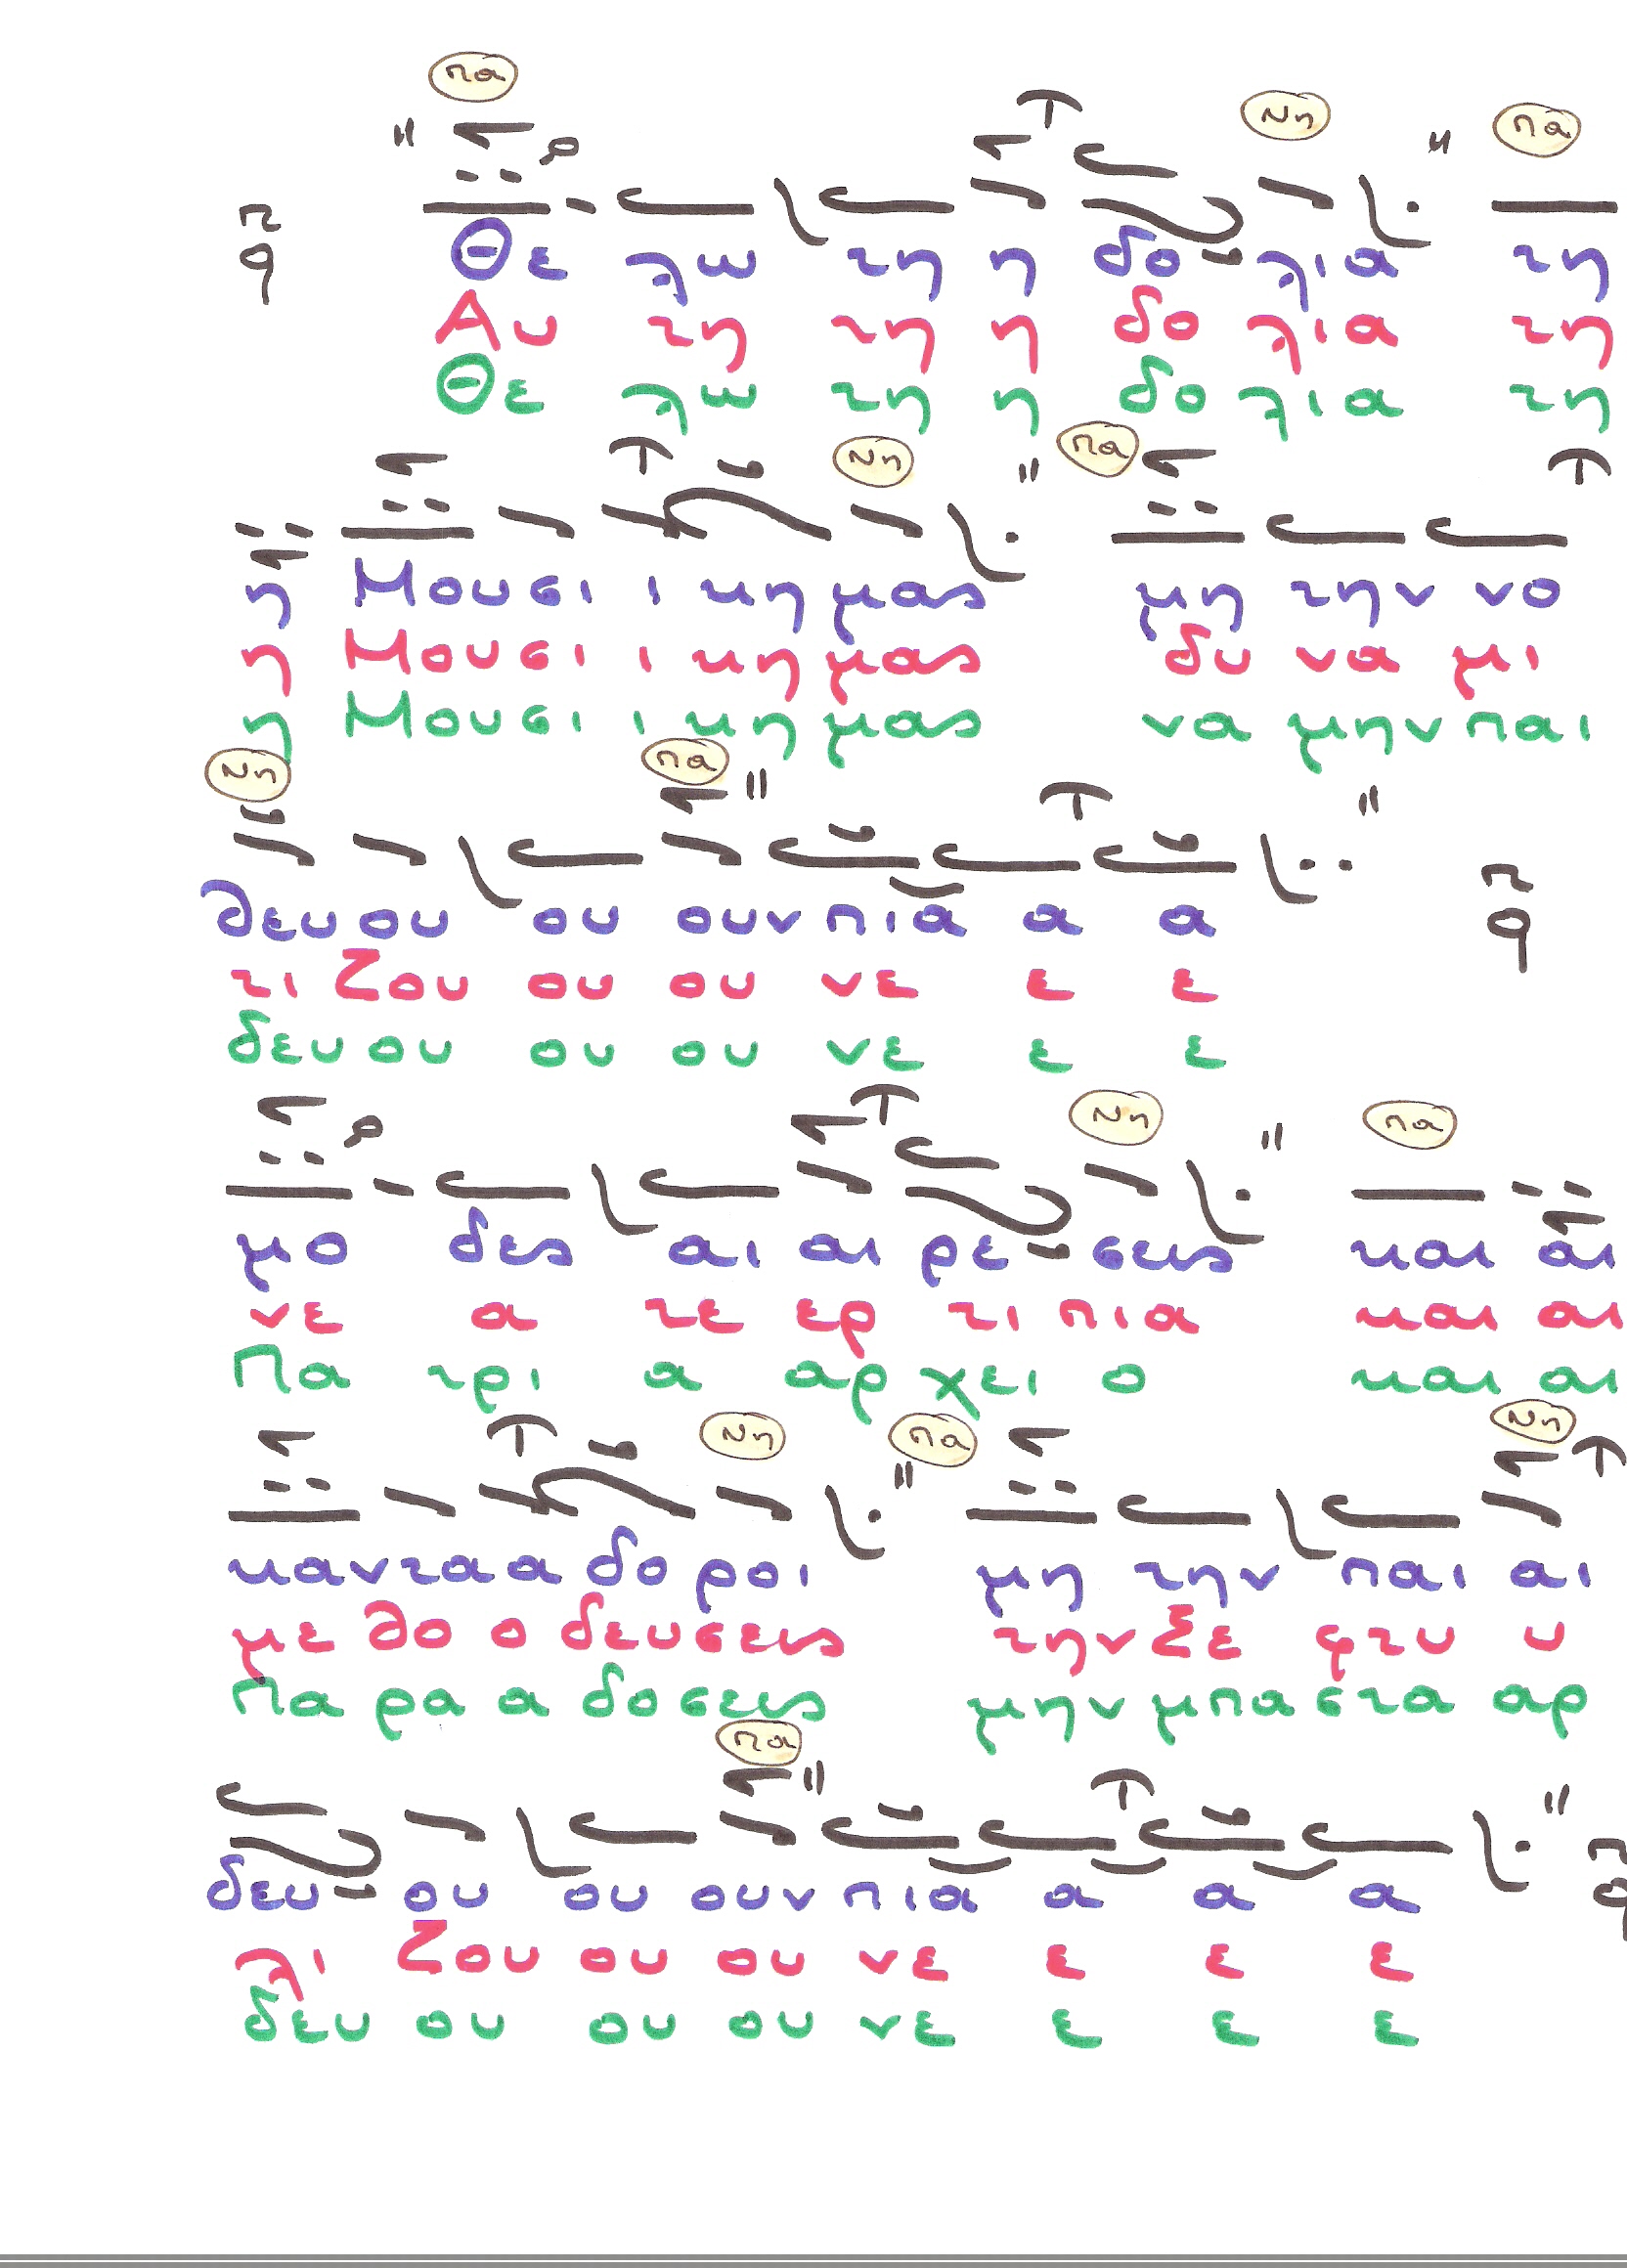 πα
Νη πα
π
q
Θε λω τη η δο λια τη
Αυ τη τη η δο λια τη
Θε λω τη η δο λια τη
Νη πα
η Μουσι ι κη μας μη την νο
η Μουσι ι κη μας δυ να μι
η Μουσι ι κη μας να μην παι
Νη πα
π
q
θευ ου ου ουν πια α α
τι ζου ου ου νε ε ε
δευ ου ου ου νε ε ε
Νη πα
μο δες αι αι ρε σεις και αι
νε α τε ερ τι πια και αι
Πα τρι α αρ χει ο και αι
Νη πα Νη
κανταα δοροι μη την παι αι
με θο ο δευσεις την Σε φτυ υ
Πα ρα α δοσεις μην μπαστα αρ
πα
π
q
δευ ου ου ουν πια α α α
λι ζου ου ου νε ε ε ε
δευ ου ου ου νε ε ε ε